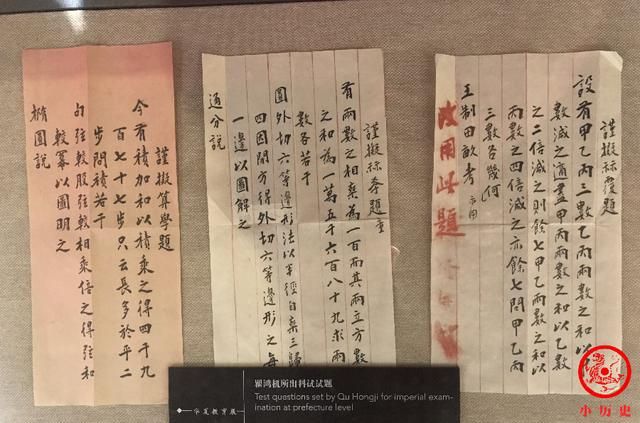 謹擬綜覆題
設有甲乙丙三數乙丙兩數之和以
數減之適盡甲丙兩數之和以乙數
之二倍減之則餘七甲乙兩數之和以
丙數之四倍減之亦餘七問甲乙丙
三數各幾何
王制田畝考
改用此題
謹擬綜題
有兩數之相乘為一百而其兩立方數
之和為一萬五千六百八十九求兩
數各若干
圓外切六等邊形法以半徑自乘三歸
四因開方得外切六等邊形之每
一邊以圖解之
通分說
謹擬算學題
今有積加和以積乘之得四千九
百七十七步只云長多於平二
步問積若干
句弦較股弦較相乘倍之得弦和
較冪以圖明之
橢圓說
華夏教育展
瞿鸿机所出科试试题
Test questions set by Qu Hongji for imperial exam-
ination at prefecture level
小历史